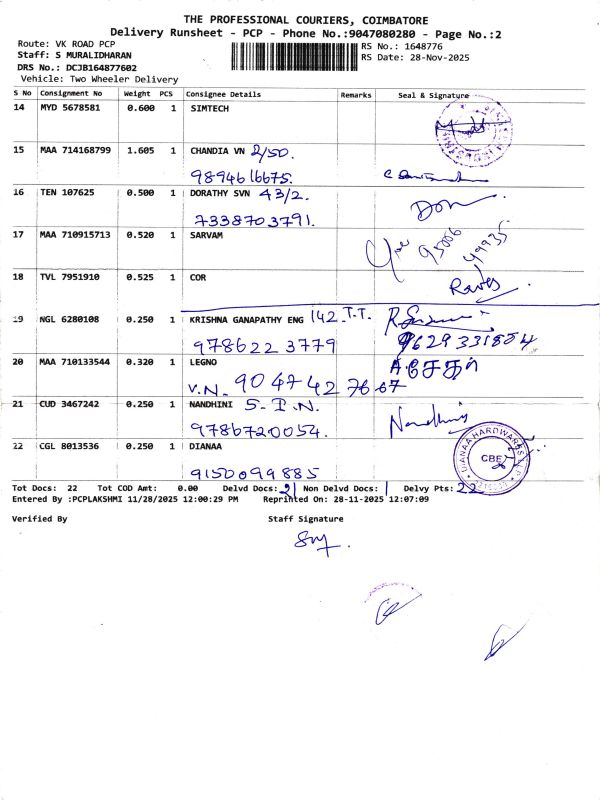 THE PROFESSIONAL COURIERS, COIMBATORE
Delivery Runsheet - PCP - Phone No.:9047080280 - Page No.:2
Route: VK ROAD PCP
RS No.: 1648776
Staff: S MURALIDHARAN
RS Date: 28-Nov-2025
DRS No.: DCJB164877602
Vehicle: Two Wheeler Delivery
S No Consignment No Weight PCS Consignee Details Remarks Seal & Signature
14 MYD 5678581 0.600 1 SIMTECH
15 MAA 714168799 1.605 1 CHANDIA VN 2/50.
9894616675.
16 TEN 107625 0.500 1 DORATHY SVN 43/2.
7338703791.
17 MAA 710915713 0.520 1 SARVAM
95006
49935
18 TVL 7951910 0.525 1 COR
19 NGL 6280108 0.250 1 KRISHNA GANAPATHY ENG 142.T.T.
9786223779
9629331854
20 MAA 710133544 0.320 1 LEGNO
V.N. 9047427667
21 CUD 3467242 0.250 1 NANDHINI S.I.N. Nandhini
9786720054.
22 CGL 8013536 0.250 1 DIANAA
DIANAA HARDWARES LLP
CBE
9150099885
Tot Docs: 22 Tot COD Amt: 0.00 Delvd Docs: 21 Non Delvd Docs: 1 Delvy Pts: 22
Entered By :PCPLAKSHMI 11/28/2025 12:00:29 PM Reprinted On: 28-11-2025 12:07:09
Verified By Staff Signature